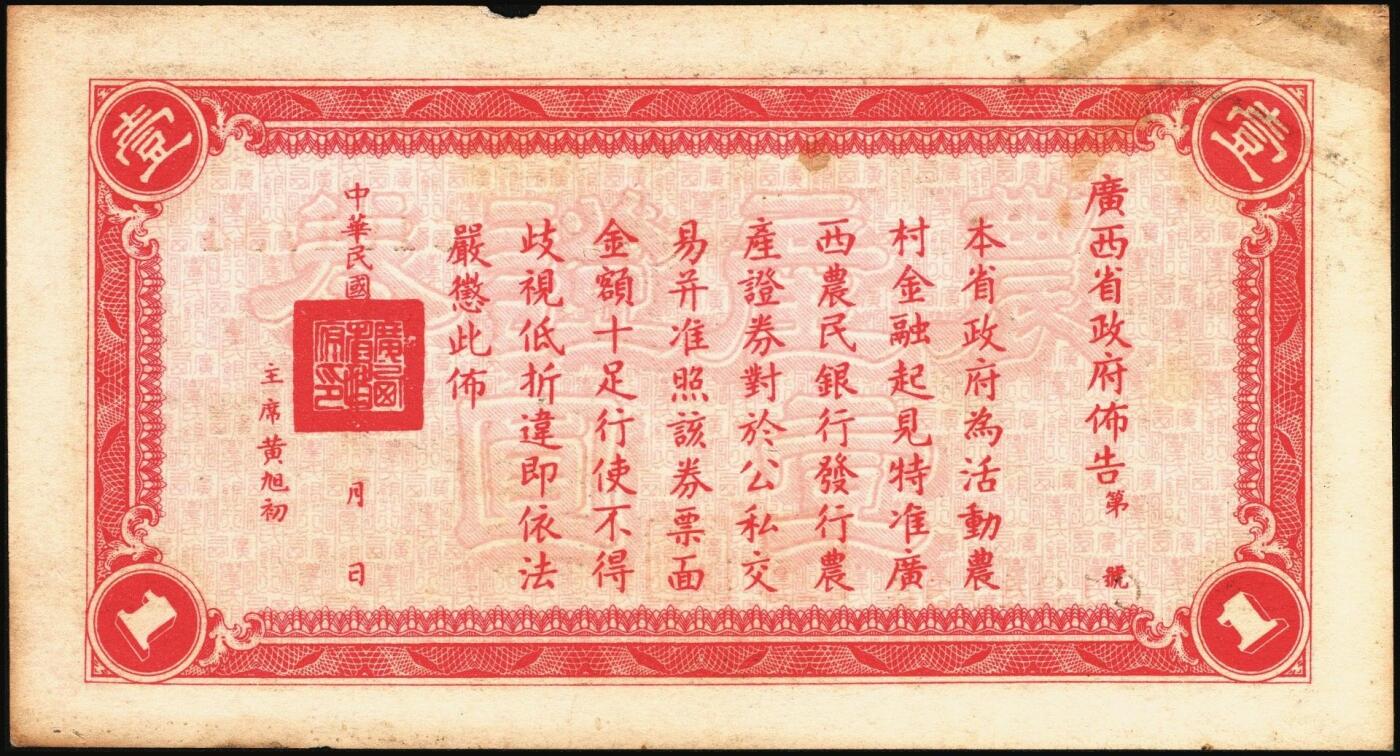 壹
壹
廣西省政府佈告第 號
本省政府為活動農
村金融起見特准廣
西農民銀行發行農
產證券對於公私交
易并准照該券票面
金額十足行使不得
歧視低折違即依法
嚴懲此佈
中華民國 月 日
主席黃旭初
廣西省政府印
農產證券
壹圓
1
1